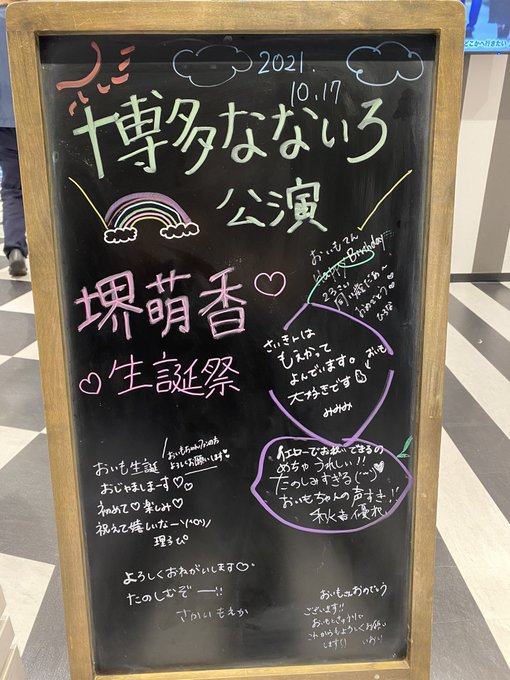 2021.
10.17
博多なないろ
公演
堺萌香♡
♡生誕祭
おいもてん
Happy Birthday
23さい
同い歳だぁ〜
おめでとう♡
ひろな
さいきんは
もえかって
よんでいます。
大好きです
みみみ
おいも
イエローでお祝いできるの
めちゃうれしい!!
たのしみすぎる
おいもちゃんの声すき!!
秋吉優花
おいもちゃん
よろしくお願いします♡
おいも生誕
おじゃまします♡♡
初めて♡楽しみ♡
祝えて嬉しいなー\(^o^)/
理るぴ
よろしくおねがいします♡
たのしむぞー!!
さかいもえか
おいもさんおめでとう
ございます!!
これからもよろしくお願い
します!!